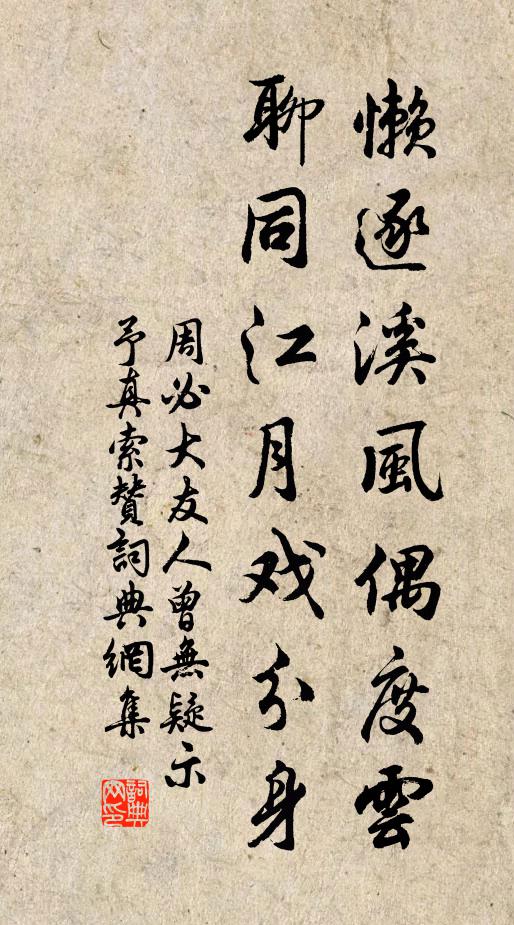 懒逐溪風偶度雲
聊同江月戏分身
周必大友人曾無疑示
予真索贊詞典網集
詞典网印